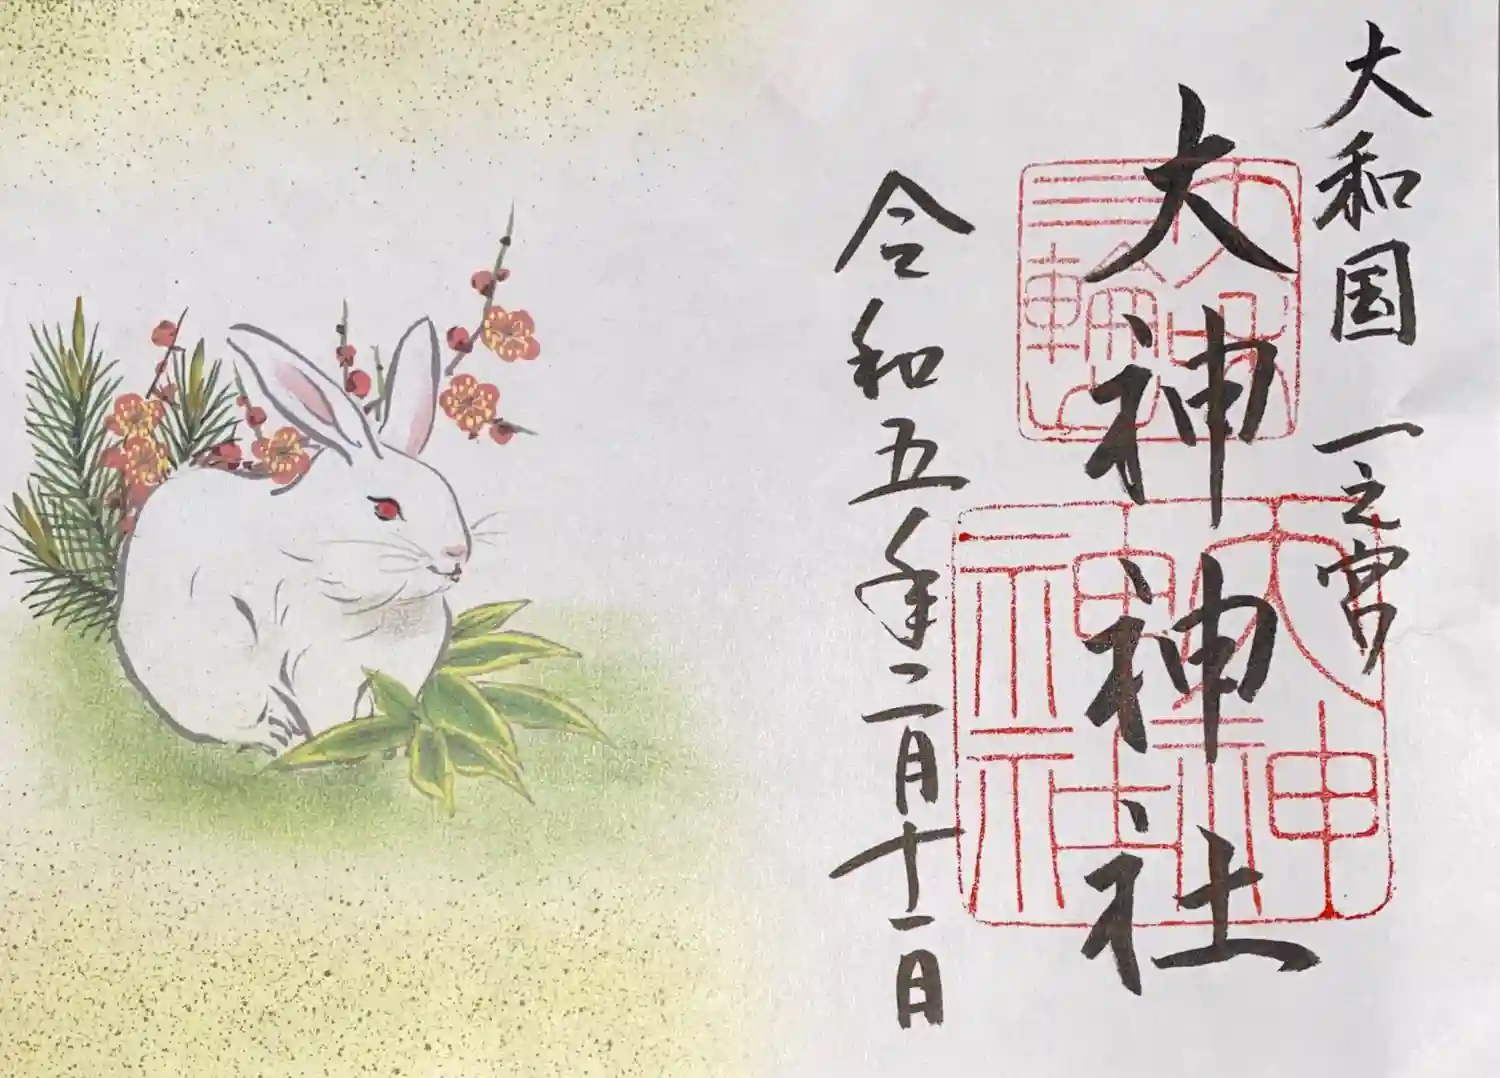 大和国 一之宮
大神神社
令和五年二月十一日